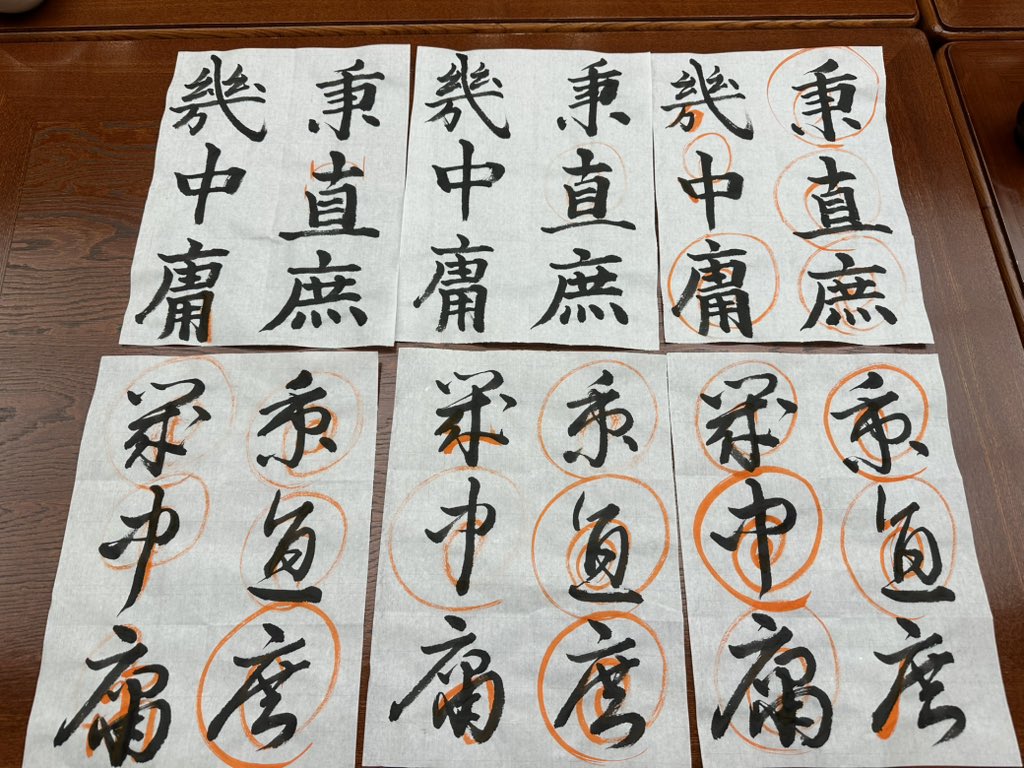 秉直庶
幾中庸
秉直庶
幾中庸
秉直庶
幾中庸
秉直庶
幾中庸
秉直庶
幾中庸
秉直庶
幾中庸